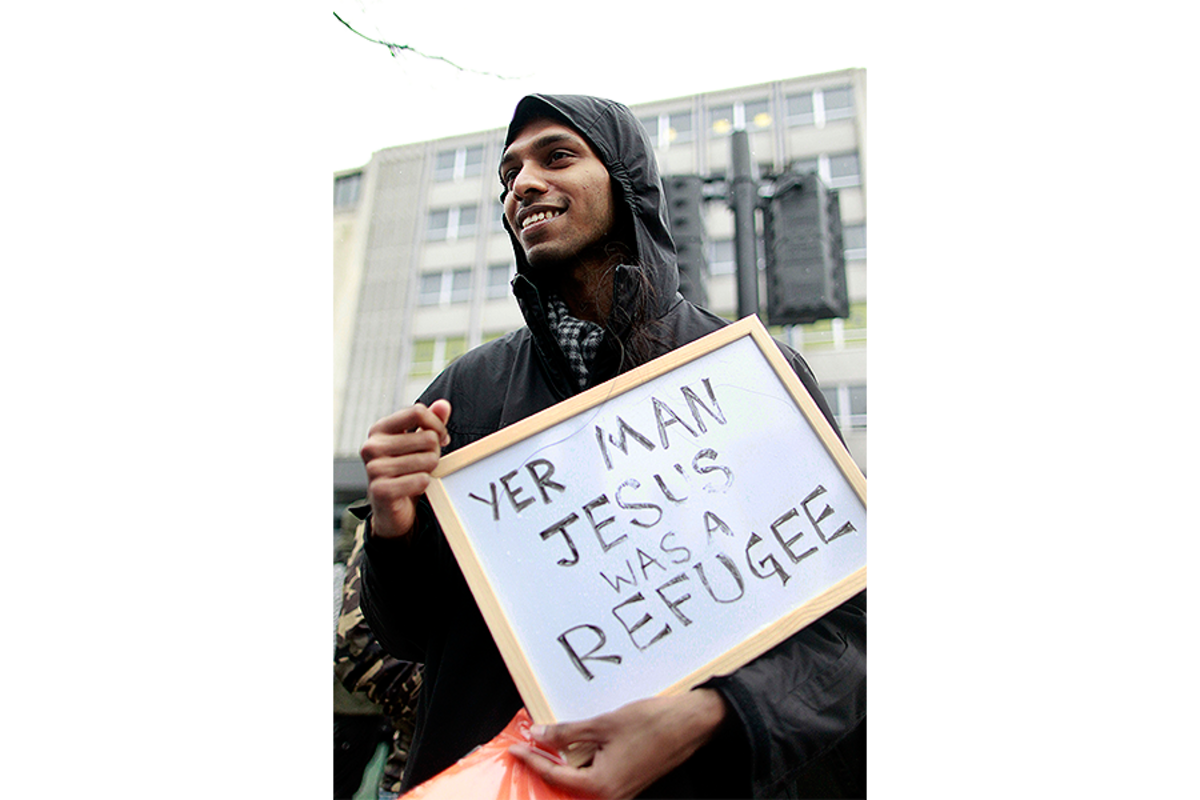 YER MAN
JESUS
WAS A
REFUGEE